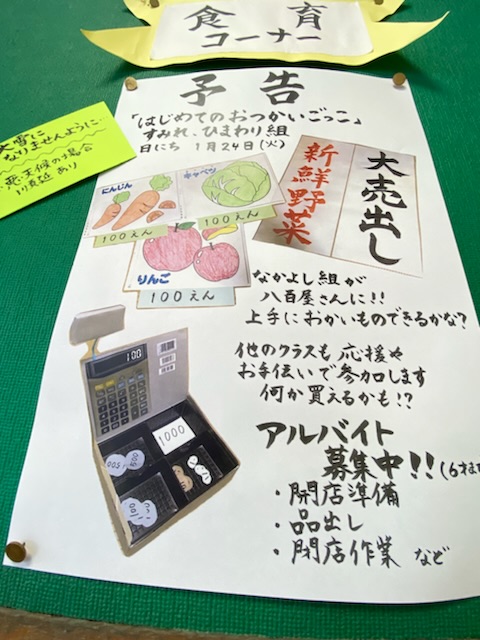 食育
コーナー
予告
「はじめてのおつかいごっこ」
すみれ、ひまわり組
日にち 1月24日(火)
大雪に
なりませんように…
・悪天候の場合
あり
にんじん
キャベツ
100えん
100えん
りんご
100えん
大売出し
新鮮野菜
なかよし組が
八百屋さんに!!
上手におかいものできるかな?
他のクラスも応援や
お手伝いで参加します
何か買えるかも!?
100
1000
500
500
100
アルバイト
募集中!!(6才まで
・開店準備
・品出し
・閉店作業 など